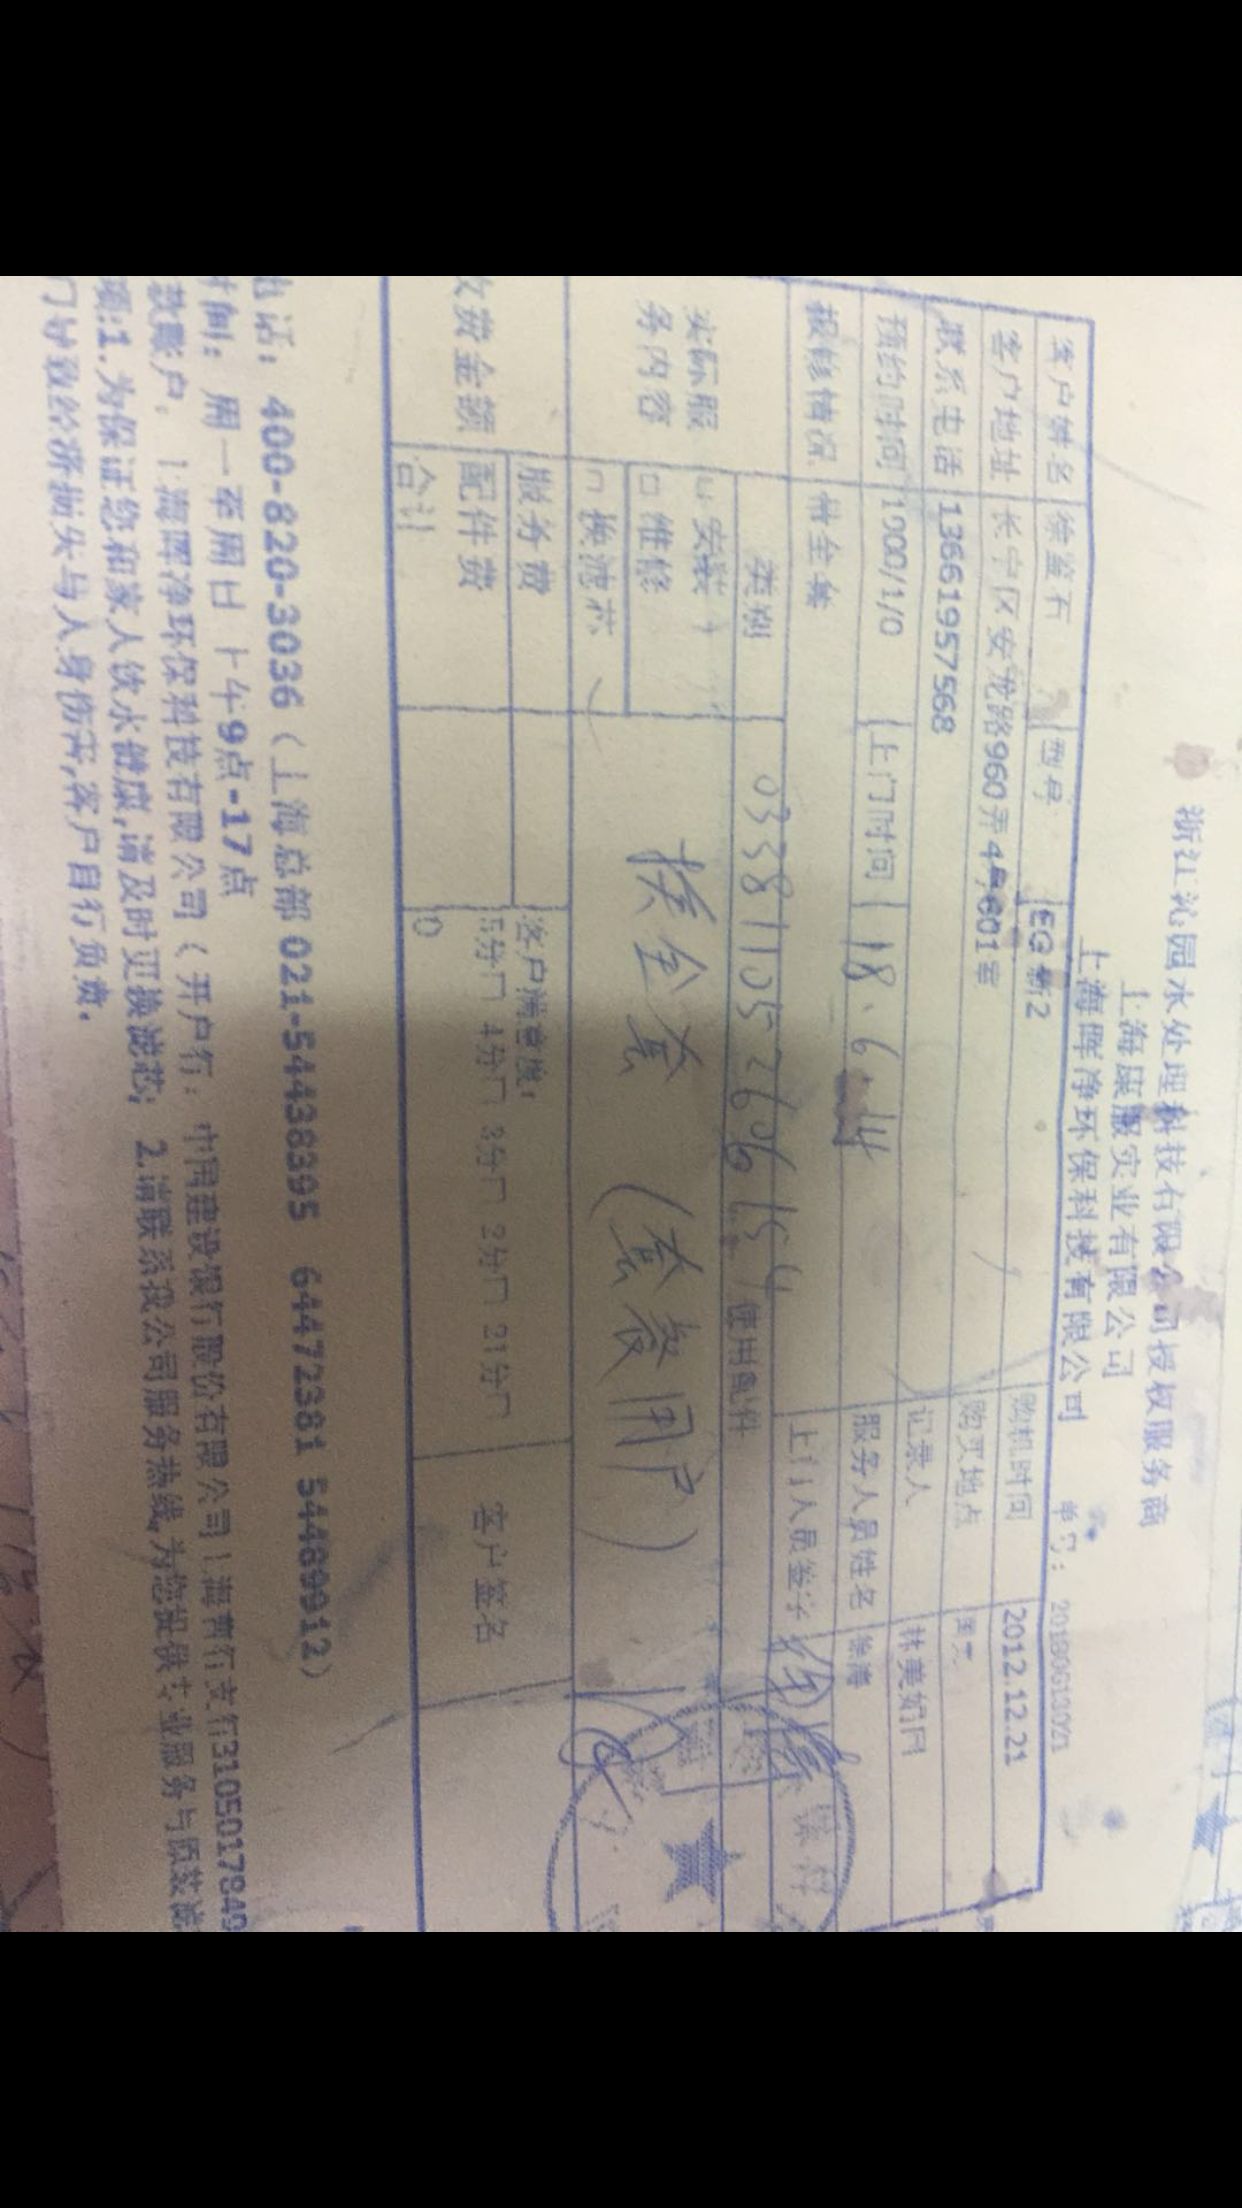 浙江沁园水处理科技有限公司授权服务商
上海康服实业有限公司
上海晖净环保科技有限公司 单号: 2018061309
客户姓名 徐 型号 EG 新2 购机时间 2012.12.21
客户地址 长宁区安龙路960弄4号601室 购买地点
联系电话 13661957568 记录人 林美娟
预约时间 1900/1/0 上门时间 18.6.14 服务人员姓名 徐
报修情况 世全套 上门人员签字 徐
实际服务内容 类别 033811052696154 使用配件
安装
□ 维修 换全套 (套餐用户)
□ 换滤芯
收费金额 服务费 客户满意度:
配件费 5分□ 4分□ 3分□ 2分□ 21分□ 客户签名
合计 0
电话: 400-820-3036 (上海总部 021-54438395 64472381 54489912)
时间: 周一至周日 上午9点-17点
款账户: 上海晖净环保科技有限公司 (开户行: 中国建设银行股份有限公司上海 支行310501784
项:1. 为保证您和家人饮水健康,请及时更换滤芯; 2.请联系我公司服务热线,为您提供专业服务与质
导致经济损失与人身伤害,客户自行负责.